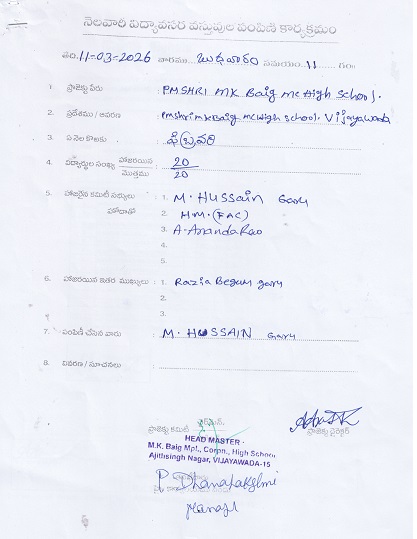 నెలవారీ విద్యావసర వస్తువుల పంపిణీ కార్యక్రమం
తేది: 11-03-2026 వారము బుధవారం సమయం 11 గం
1. ప్రాజెక్టు పేరు : PMSHRI MK Baig MC High School.
2. ప్రదేశము / ఆవరణ : Pmshri MK Baig MC High School. Vijayawada
3. ఏ నెల కొఱకు : ఫిబ్రవరి
4. విద్యార్థుల సంఖ్య హాజరయిన : 20
మొత్తము 20
5. హాజరైన కమిటీ సభ్యులు : 1. M. Hussain Garu
హోదాతో 2. H.M. (FAC)
3. A. Ananda Rao
4.
5.
6. హాజరయిన ఇతర ముఖ్యులు : 1. Razia Begum garu
2.
3.
7. పంపిణీ చేసిన వారు : M. HUSSAIN Garu
8. వివరణ / సూచనలు :
ప్రాజెక్టు కమిటీ ఛైర్మన్, ప్రాజెక్టు డైరెక్టర్
HEAD MASTER
M.K. Baig Mpl., Corpn., High School
Ajithsingh Nagar, VIJAYAWADA-15
P. Dhanalakshmi